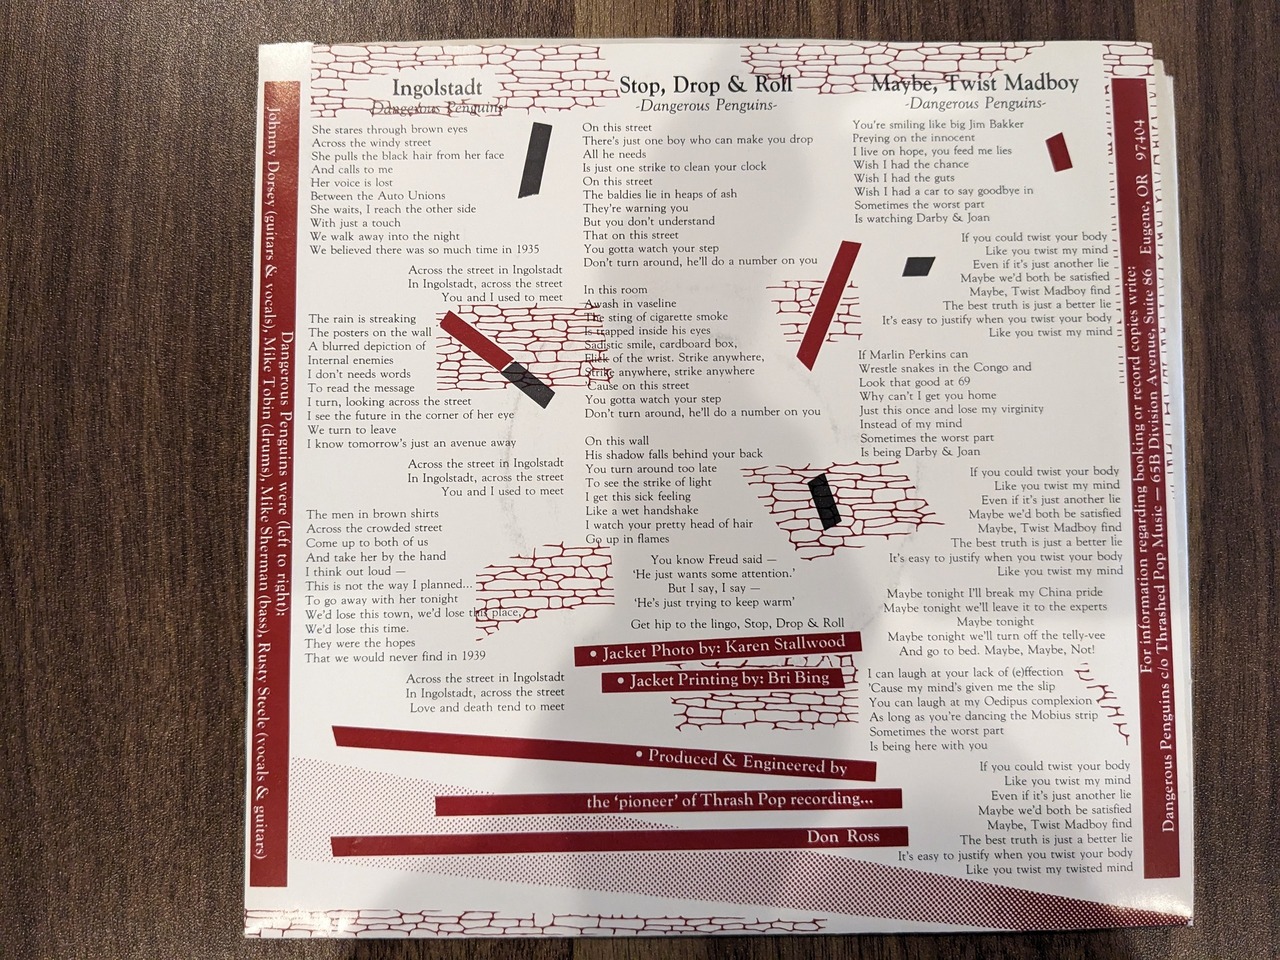 Johnny Dorsey (guitars & vocals), Mike Tobin (drums), Mike Sherman (bass), Rusty Steele (vocals & guitars)
Dangerous Penguins were (left to right):
Ingolstadt
Dangerous Penguins
She stares through brown eyes
Across the windy street
She pulls the black hair from her face
And calls to me
Her voice is lost
Between the Auto Unions
She waits, I reach the other side
With just a touch
We walk away into the night
We believed there was so much time in 1935
Across the street in Ingolstadt
In Ingolstadt, across the street
You and I used to meet
The rain is streaking
The posters on the wall
A blurred depiction of
Internal enemies
I don't needs words
To read the message
I turn, looking across the street
I see the future in the corner of her eye
We turn to leave
I know tomorrow's just an avenue away
Across the street in Ingolstadt
In Ingolstadt, across the street
You and I used to meet
The men in brown shirts
Across the crowded street
Come up to both of us
And take her by the hand
I think out loud —
This is not the way I planned...
To go away with her tonight
We'd lose this town, we'd lose this place,
We'd lose this time.
They were the hopes
That we would never find in 1939
Across the street in Ingolstadt
In Ingolstadt, across the street
Love and death tend to meet
Stop, Drop & Roll
-Dangerous Penguins-
On this street
There's just one boy who can make you drop
All he needs
Is just one strike to clean your clock
On this street
The baldies lie in heaps of ash
They're warning you
But you don't understand
That on this street
You gotta watch your step
Don't turn around, he'll do a number on you
In this room
Awash in vaseline
The sting of cigarette smoke
Is trapped inside his eyes
Sadistic smile, cardboard box,
Flick of the wrist. Strike anywhere,
Strike anywhere, strike anywhere
'Cause on this street
You gotta watch your step
Don't turn around, he'll do a number on you
On this wall
His shadow falls behind your back
You turn around too late
To see the strike of light
I get this sick feeling
Like a wet handshake
I watch your pretty head of hair
Go up in flames
You know Freud said —
'He just wants some attention.'
But I say, I say —
'He's just trying to keep warm'
Get hip to the lingo, Stop, Drop & Roll
• Jacket Photo by: Karen Stallwood
• Jacket Printing by: Bri Bing
• Produced & Engineered by
the 'pioneer' of Thrash Pop recording...
Don Ross
Maybe, Twist Madboy
-Dangerous Penguins-
You're smiling like big Jim Bakker
Preying on the innocent
I live on hope, you feed me lies
Wish I had the chance
Wish I had the guts
Wish I had a car to say goodbye in
Sometimes the worst part
Is watching Darby & Joan
If you could twist your body
Like you twist my mind
Even if it's just another lie
Maybe we'd both be satisfied
Maybe, Twist Madboy find
The best truth is just a better lie
It's easy to justify when you twist your body
Like you twist my mind
If Marlin Perkins can
Wrestle snakes in the Congo and
Look that good at 69
Why can't I get you home
Just this once and lose my virginity
Instead of my mind
Sometimes the worst part
Is being Darby & Joan
If you could twist your body
Like you twist my mind
Even if it's just another lie
Maybe we'd both be satisfied
Maybe, Twist Madboy find
The best truth is just a better lie
It's easy to justify when you twist your body
Like you twist my mind
Maybe tonight I'll break my China pride
Maybe tonight we'll leave it to the experts
Maybe tonight
Maybe tonight we'll turn off the telly-vee
And go to bed. Maybe, Maybe, Not!
I can laugh at your lack of (e)ffection
'Cause my mind's given me the slip
You can laugh at my Oedipus complexion
As long as you're dancing the Mobius strip
Sometimes the worst part
Is being here with you
If you could twist your body
Like you twist my mind
Even if it's just another lie
Maybe we'd both be satisfied
Maybe, Twist Madboy find
The best truth is just a better lie
It's easy to justify when you twist your body
Like you twist my twisted mind
For information regarding booking or record copies write:
Dangerous Penguins c/o Thrashed Pop Music — 65B Division Avenue, Suite 86 Eugene, OR 97404